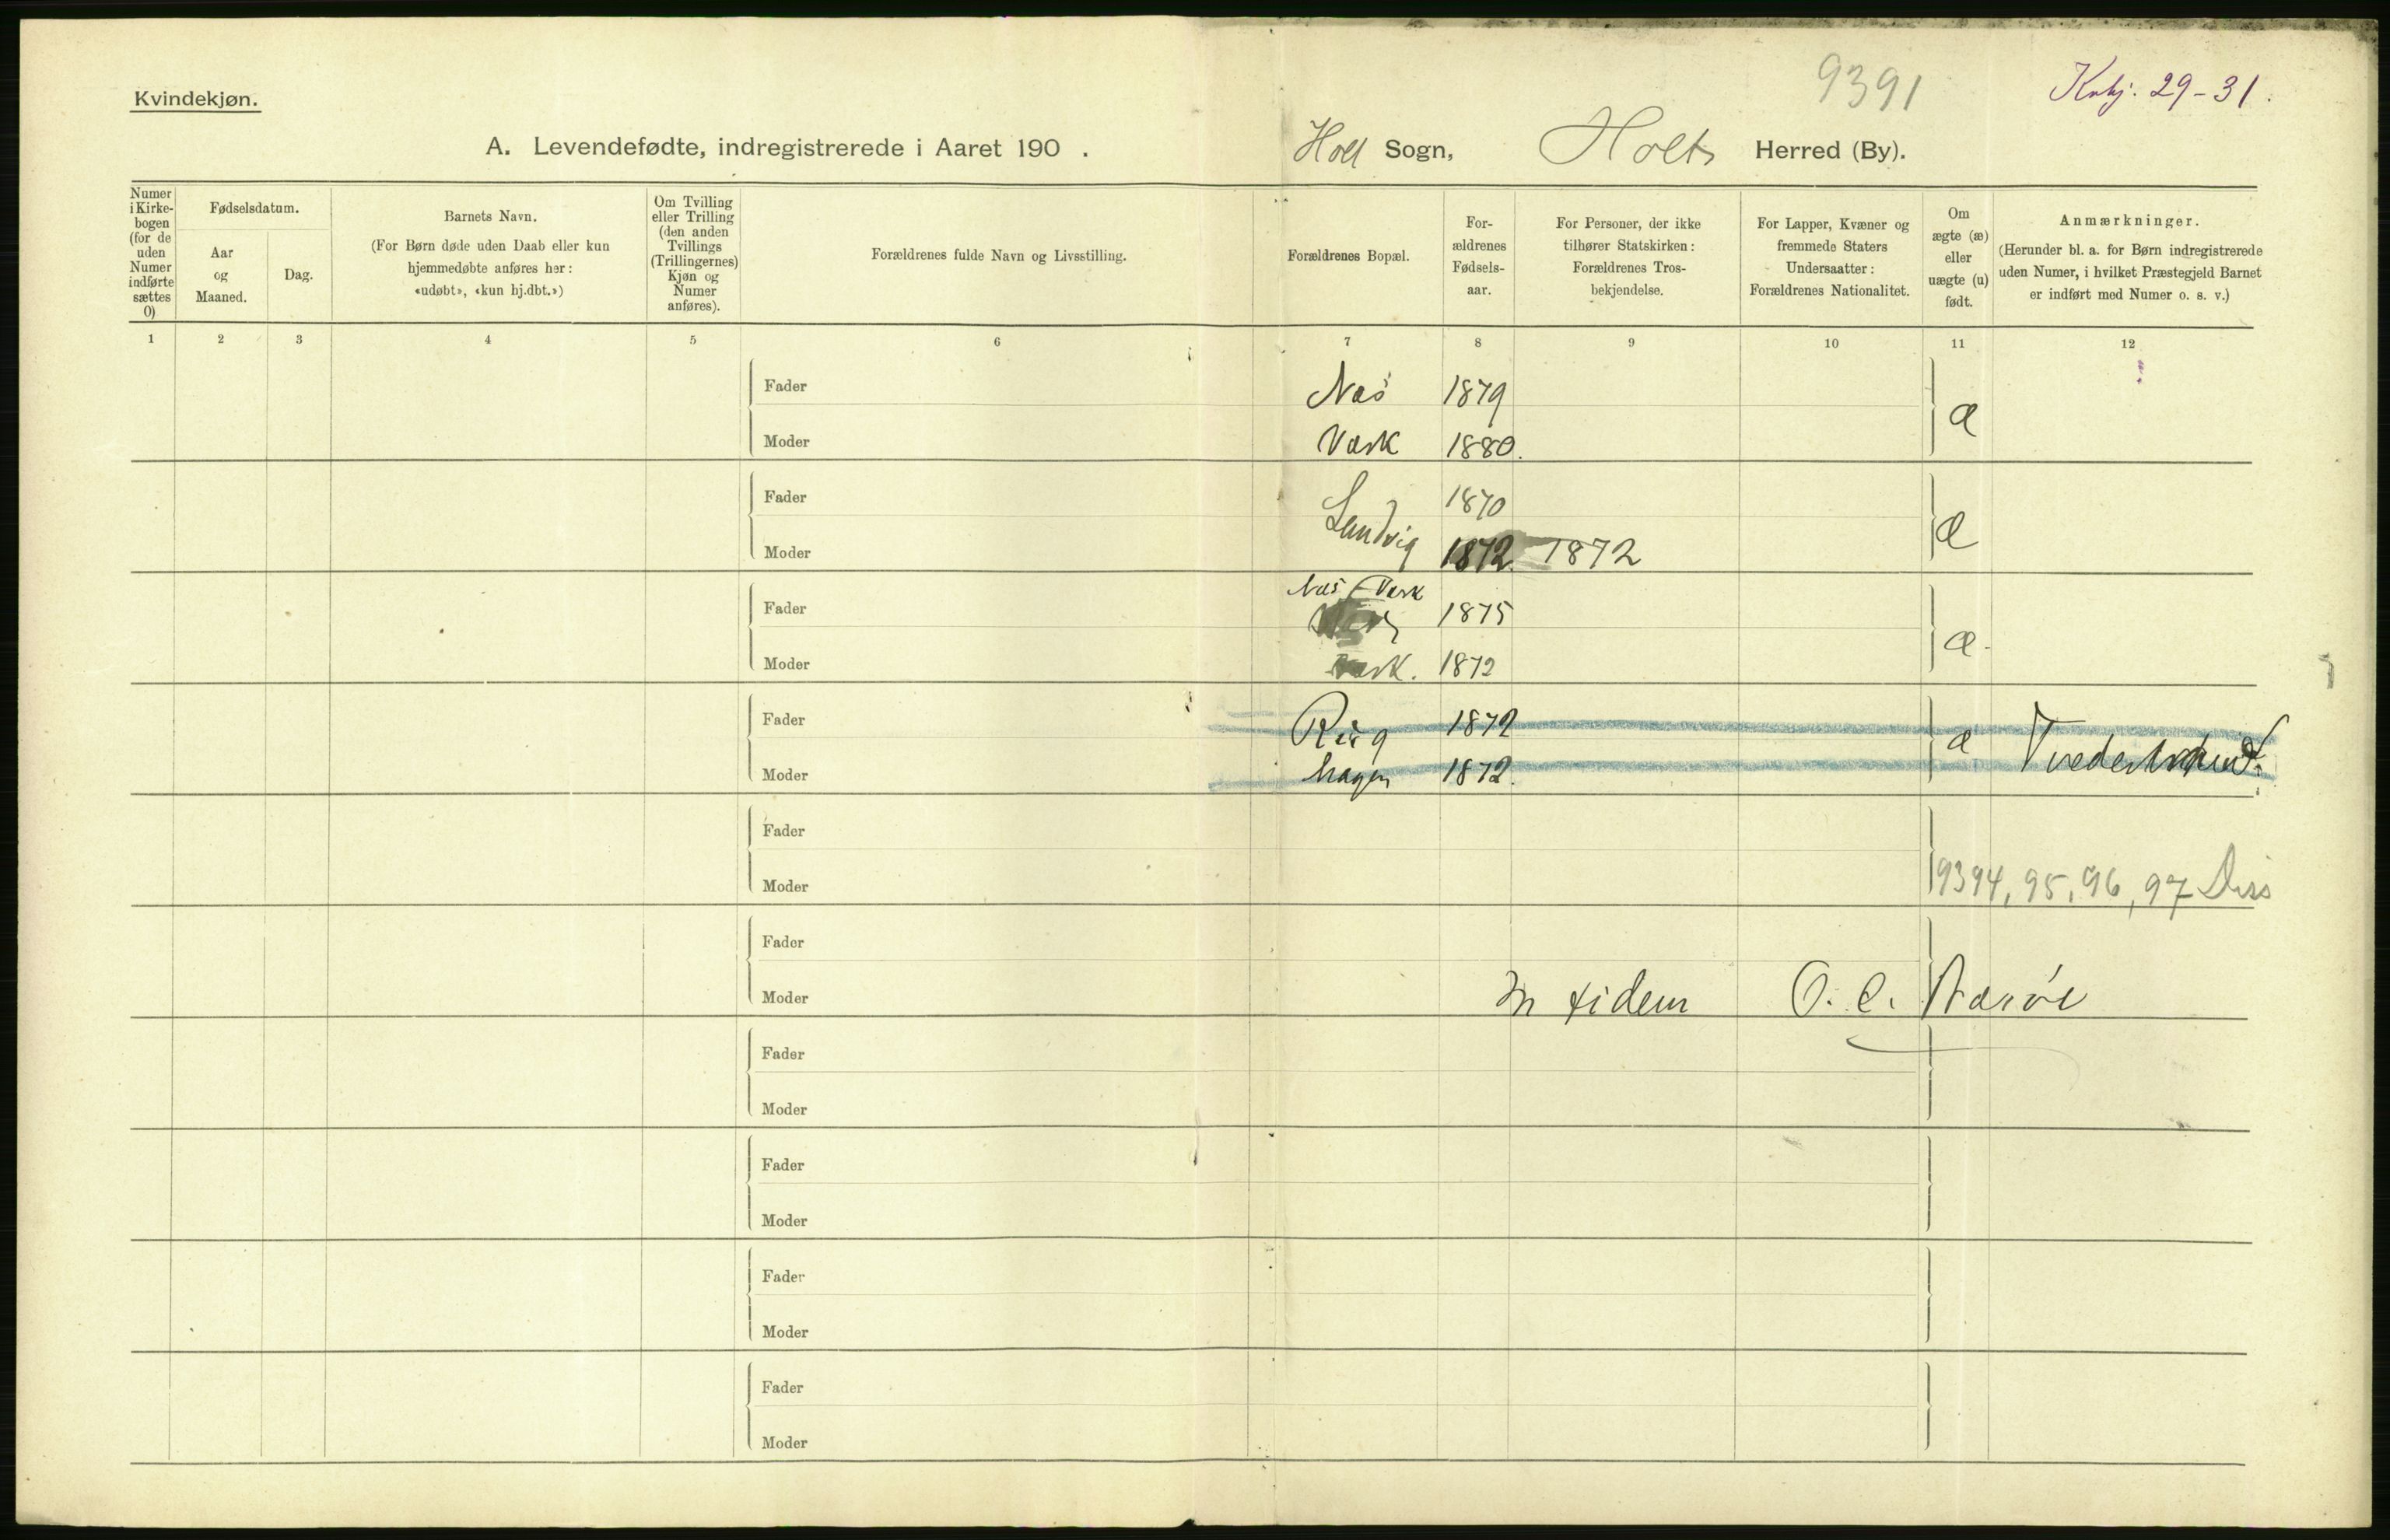 Kvindekjøn.
9391
Kvkj. 29-31.
A. Levendefødte, indregistrerede i Aaret 190 .
Holt Sogn, Holts Herred (By).
Numer i Kirke-bogen (for de uden Numer indførte sættes 0)
Fødselsdatum.
Aar og Maaned.
Dag.
Barnets Navn.
(For Børn døde uden Daab eller kun hjemmedøbte anføres her: «udøbt», «kun hj.dbt.»)
Om Tvilling eller Trilling (den anden Tvillings (Trillingernes) Kjøn og Numer anføres).
Forældrenes fulde Navn og Livsstilling.
Forældrenes Bopæl.
For-ældrenes Fødsels-aar.
For Personer, der ikke tilhører Statskirken: Forældrenes Tros-bekjendelse.
For Lapper, Kvæner og fremmede Staters Undersaatter: Forældrenes Nationalitet.
Om ægte (æ) eller uægte (u) født.
Anmærkninger.
(Herunder bl. a. for Børn indregistrerede uden Numer, i hvilket Præstegjeld Barnet er indført med Numer o. s. v.)
1 2 3 4 5 6 7 8 9 10 11 12
Fader Næs 1879
æ
Moder Værk 1880.
Fader 1870
Landvig æ
Moder 1872 1872
Næs Værk
Fader 1875
æ
Moder Værk. 1872
Fader Ring 1872
æ Tvedestrand.
Moder hagen 1872.
Fader
Moder
9394, 95, 96, 97 Diss
Fader
Moder
In fidem O. C.
Fader
Moder
Fader
Moder
Fader
Moder
Fader
Moder